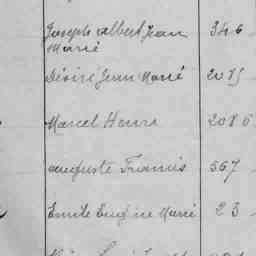 Joseph Albert Jean 346
Marié
Désiré Jean Marié 2085
Marcel Henri 2086
Auguste Francis 567
Emile Eugène Marié 23